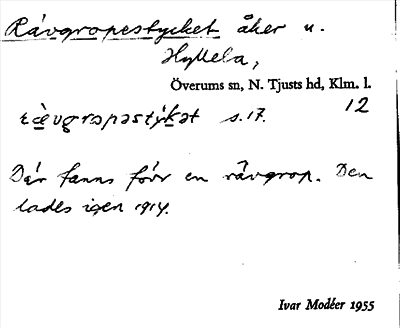 Rävgropestycket åker u.
Hyllela,
Överums sn, N. Tjusts hd, Klm. l.
12
rævgrɷpəstýkət s. 17.
Där fanns förr en rävgrop. Den
lades igen 1914.
Ivar Modéer 1955